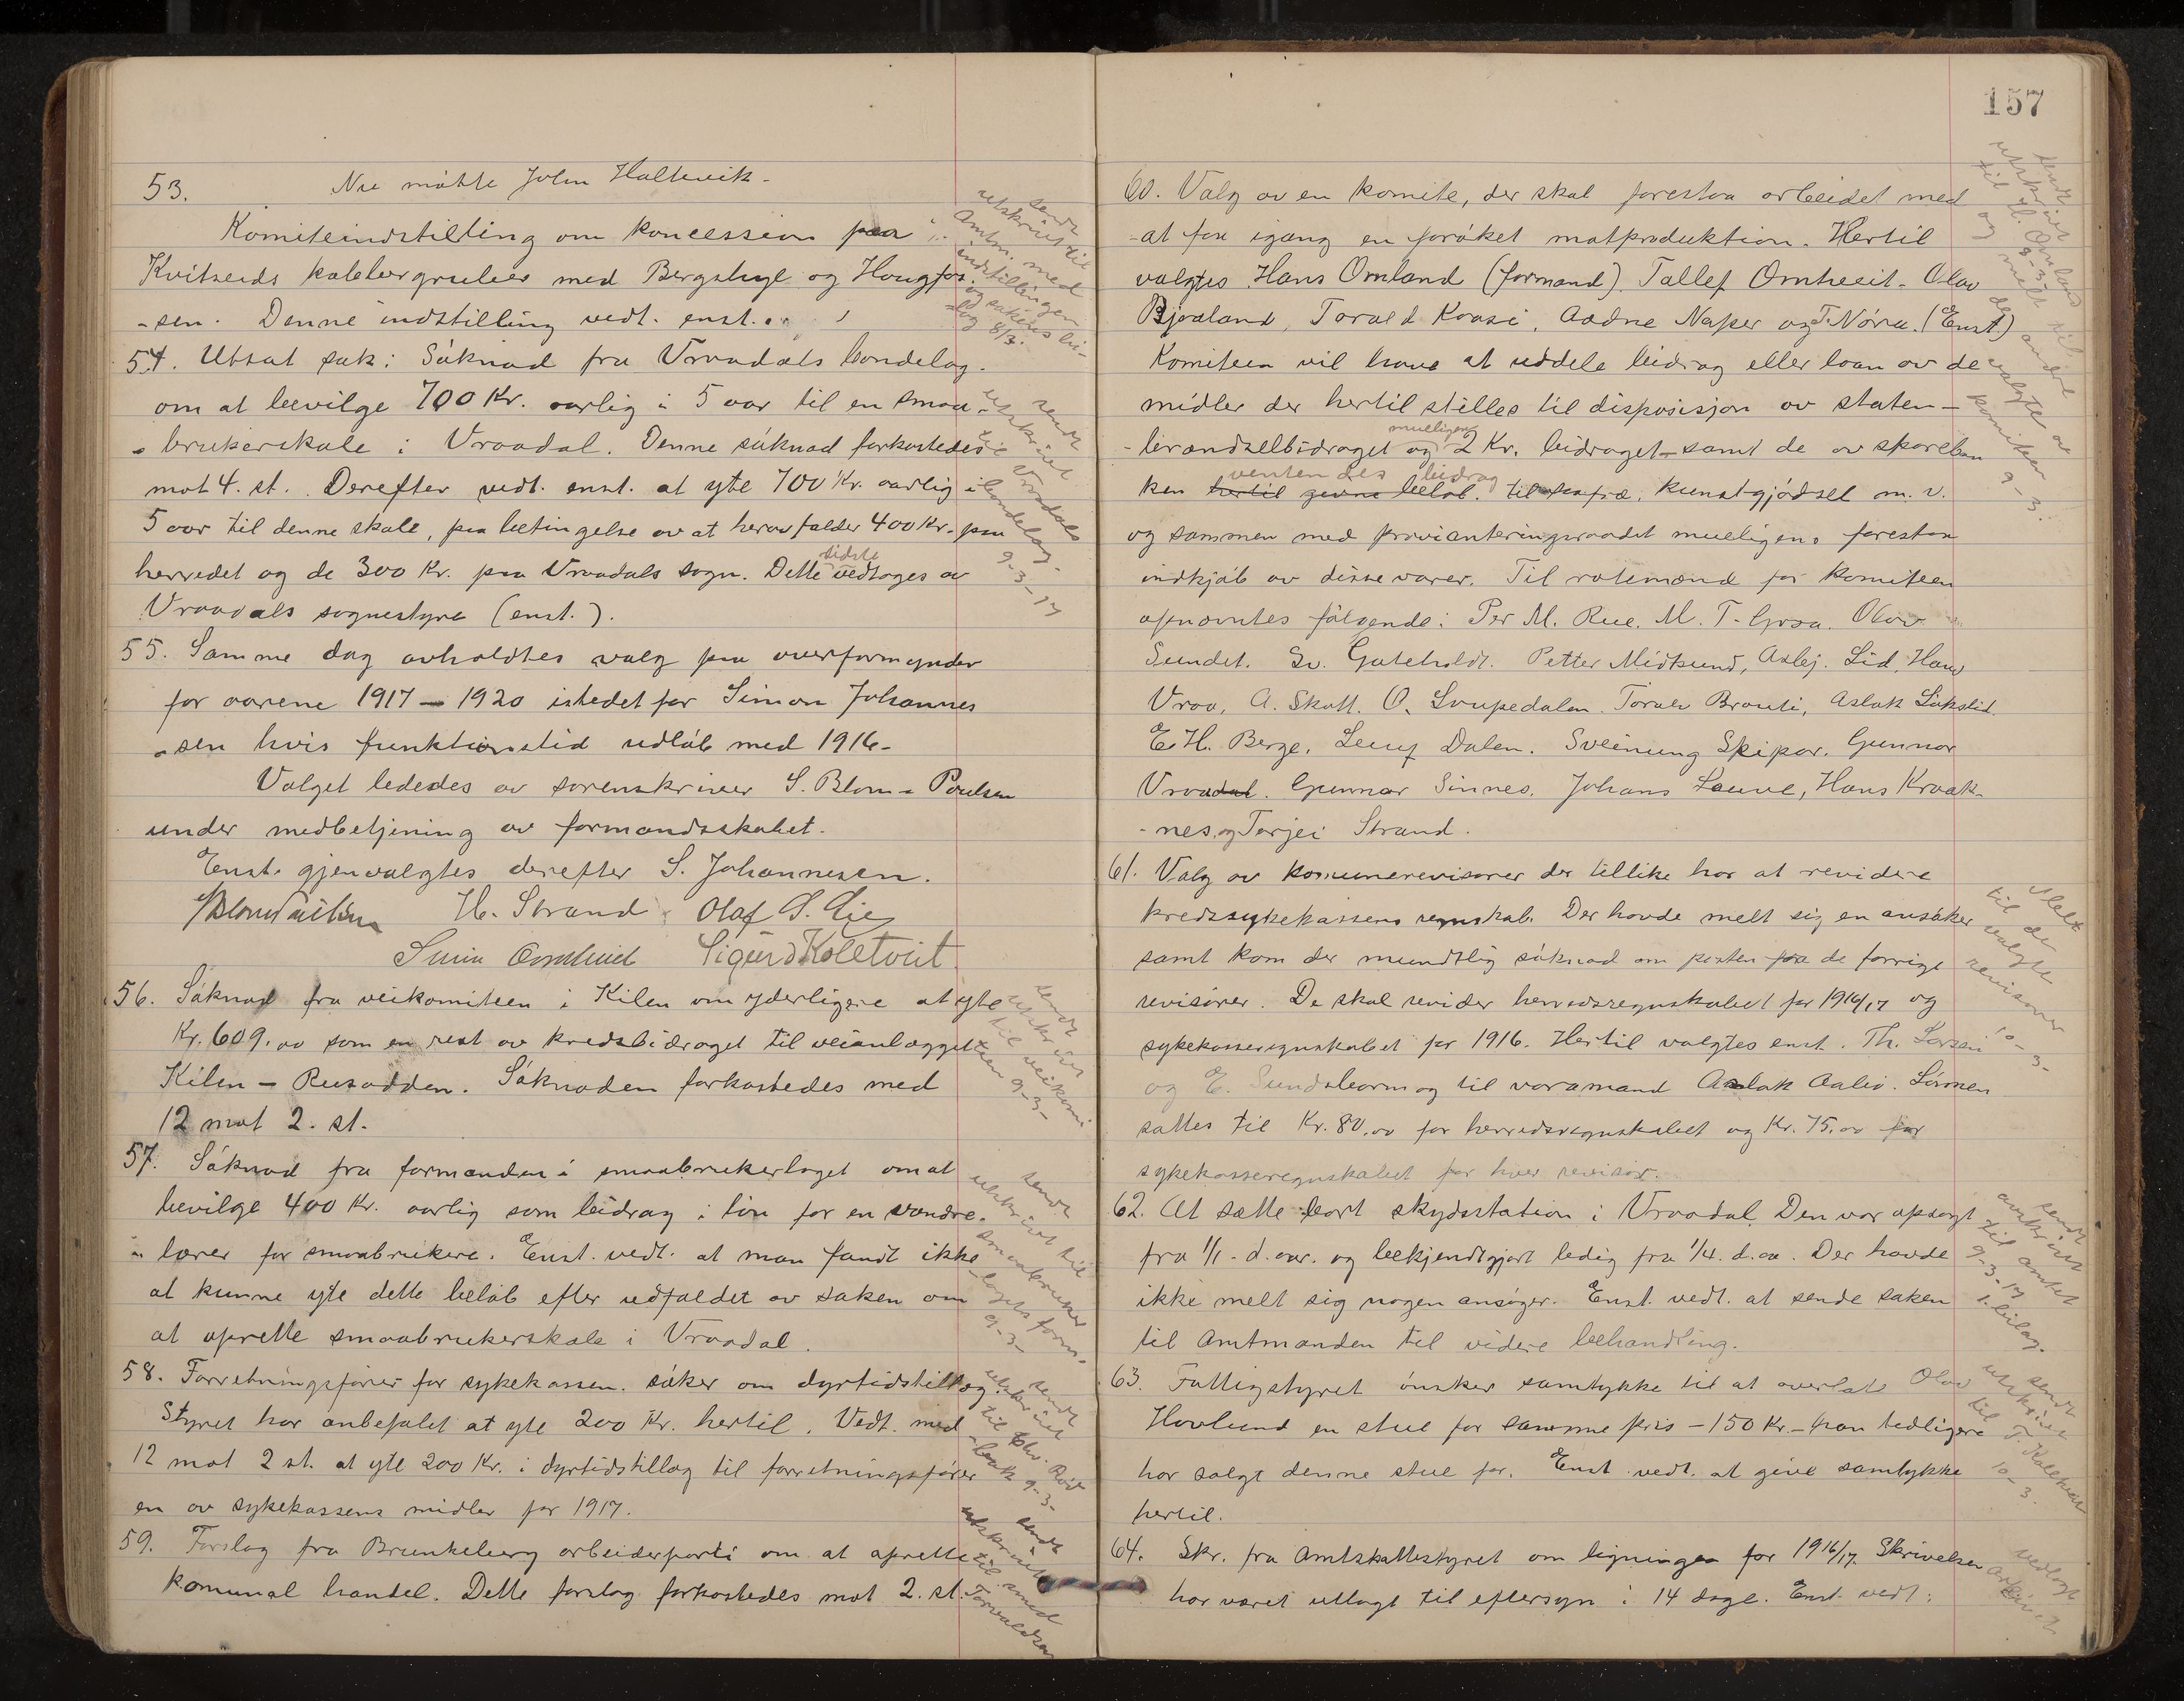 53. Nu måtte John Haltvik.
Komiteindstilling om koncession paa
Kvitseids kobbergruber med Bergshyl og Hougfos.
-sen. Denne indstilling vedt. enst.
sendt
utskrivt til
Amtm. med
indstillingen
8/3.
54. Utsat sak: Såknad fra Vraadals bondelag.
om at bevilge 700 Kr. aarlig i 5 aar til en smaa-
-brukerskole i Vraadal. Denne såknad forkastedes
mot 4. st. Derefter vedt. enst. at yte 700 Kr. aarlig i
5 aar til denne skole, paa betingelse av at herav falder 400 Kr. paa
herredet og de 300 Kr. paa Vraadals sogn. Dette sidste vedtoges av
Vraadals sognestyre (enst.).
sendt
utskrivt
til Vraadals
bondelag.
9-3-17
55. Samme dag avholdtes valg paa overformynder
for aarene 1917 - 1920 istedet for Simon Johannes
-sen hvis funktionstid udlåb med 1916-
Valget lededes av sorenskriver S. Blom-Poulsen
under medbetjening av formandsskabet.
Enst. gjenvalgtes derefter S. Johannesen.
H. Strand Olaf S. Lie
Sigurd Kolltveit
56. Såknad fra veikomiteen i Kilen om yderligere at yte
Kr. 609.00 som en rest av kredsbidraget til veianlægget
Kilen - Rusodden. Såknaden forkastedes med
12 mot 2. st.
sendt
utskrivt
til veikomi
teen 9-3-
57. Såknad fra formanden i smaabrukerlaget om at
bevilge 400 Kr. aarlig som bidrag i lön for en vandre-
lærer for smaabrukere. Enst. vedt. at man fandt ikke
at kunne yte dette belåb efter udfaldet av saken om
at oprette smaabrukerskole i Vraadal.
sendt
utskrivt til
smaabruker
-lagets form.
9-3-
58. Forretningsförer for sykekassen. såker om dyrtidstillæg
Styret har anbefalet at yte 200 Kr. hertil. Vedt. med
12 mot 2 st. at yte 200 Kr. i dyrtidstillæg til forretningsförer
en av sykekassens midler for 1917.
sendt
utskrivt
til
9-3-
59. Forslag fra Brunkeberg arbeiderparti om at oprette
komunal handel. Dette forslag forkastedes mot 2. st.
sendt
utskrivt
til smed
Torvaldsen
157
60. Valg av en komite, der skal forestaa arbeidet med
-at faa igang en foråket matproduktion. Hertil
valgtes Hans Omland (formand). Tallef Omtveit. Olav
Bjaaland, Torvald Kaasi, Aadne Naper og T. Nöra. (Enst.)
Komiteen vil have at uddele bidrag eller loan av de
midler der hertil stilles til disposisjon av staten-
-brændselbidraget og muligens 2 Kr. bidraget - samt de av spareban
ken hertil givne belöb. ventendes bidrag til saafrø, kunstgjödsel m. v.
og sammen med provianteringsraadet muligens forestaa
indkjöb av disse varer. Til rotemænd for komiteen
opnævntes fölgende: Per M. Rue. M. T. Groa. Olav
Sundet. Sv. Gateholdt. Petter Midtsund, Asbj. Lid, Hans
Vraa, A. Skott. O. Loupedalen. Torvald Brauti, Aslak Likslid.
E. H. Berge. Leiuf Dalen. Sveinung Skipar. Gunnar
Vraadal. Gunnar Sinnes. Johans Lauve, Hans Kraak-
-nes, og Terjei Strand.
sendt
utskrivt
til H. Omland
og melt til
de andre
valgte av
komiteen
9-3.
61. Valg av komunerevisorer der tillike har at revidere
kredssykekassens regnskab. Der havde melt sig en ansöker
samt kom der mundtlig såknad om posten fra de forrige
revisorer. De skal revider herredsregnskabet for 1916/17 og
sykekasseregnskabet for 1916. Hertil valgtes enst. Th. Larsen
og E. Sundsbarm og til varamand Aslak Aabö. Lönnen
sattes til Kr. 80.00 for herredsregnskabet og Kr. 75.00 for
sykekasseregnskabet for hver revisor.
Melt
til de
valgte
revisorer
10-3-
62. At sætte bort skydsstation i Vraadal. Den var opsagt
fra 1/1 - d. aar. og bekjendtgjort ledig fra 1/4. d. aa. Der havde
ikke melt sig nogen ansöger. Enst. vedt. at sende saken
til Amtmanden til videre behandling.
sendt
utskrivt
til amtet
9-3-17
1. bilag.
63. Fattigstyret önsker samtykke til at overlate Olav
Hovlund en stue for samme pris - 150 Kr. - han tidligere
har solgt denne stue for. Enst. vedt. at give samtykke
hertil.
sendt
utskrivt
til
T. Kolltveit
10-3.
64. Skr. fra Amtskattestyret om ligningen for 1916/17. Skrivelsen
har været utlagt til eftersyn i 14 dage. Enst. vedt:
vedlagt